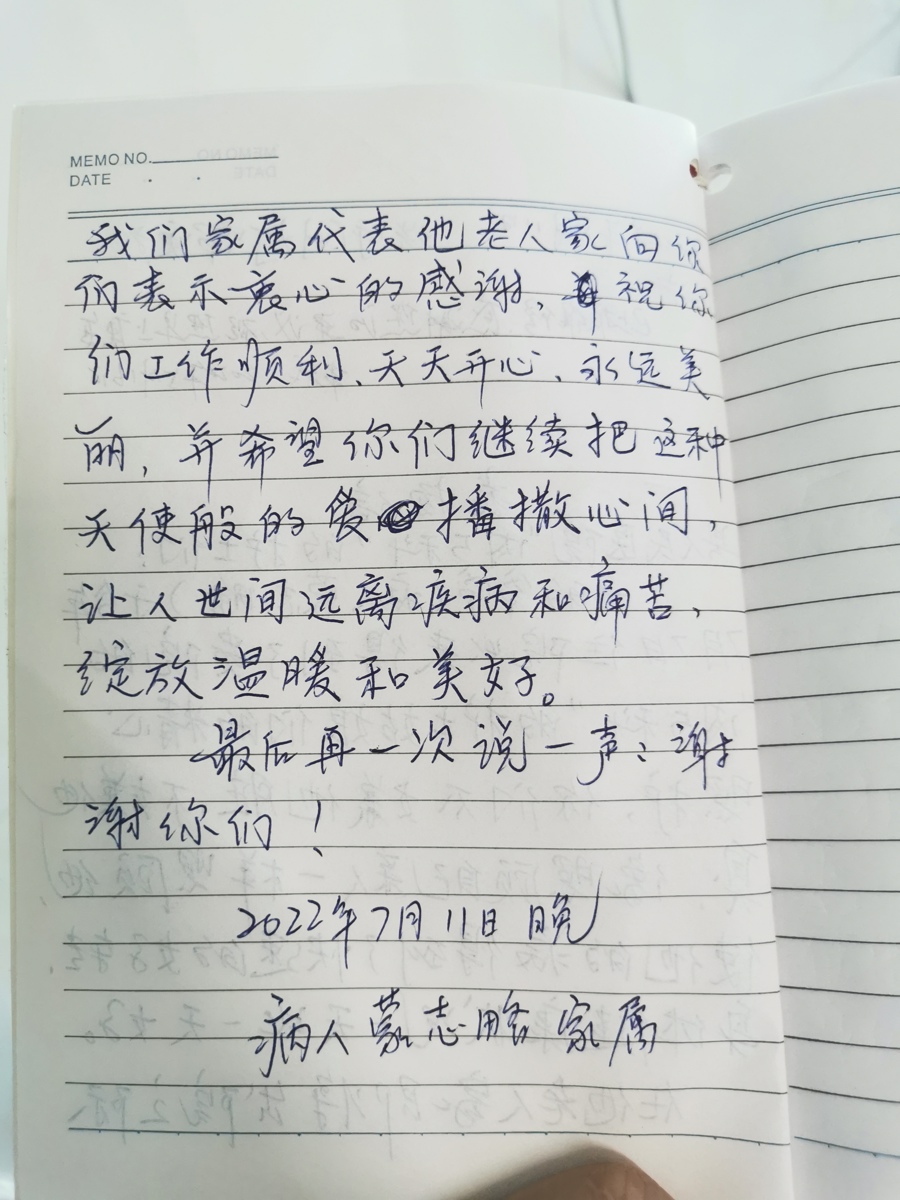 MEMO NO.
DATE . .
我们家属代表他老人家向你
们表示衷心的感谢，祝你
们工作顺利、天天开心、永远美
丽，并希望你们继续把这种
天使般的爱播撒心间，
让人世间远离疾病和痛苦，
绽放温暖和美好。
最后再一次说一声：谢
谢你们！
2022年7月11日晚
病人蒙志 家属